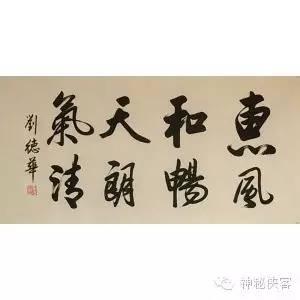 惠風
和暢
天朗
氣清
劉德華
神秘侠客